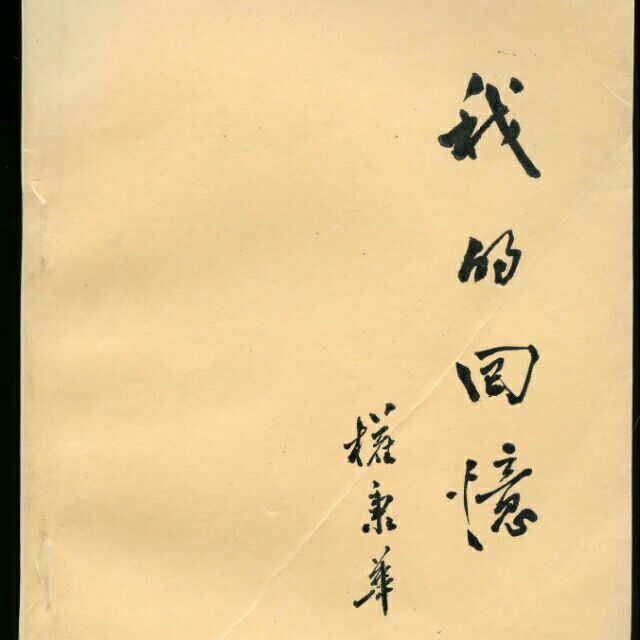 我的回憶
權秉華